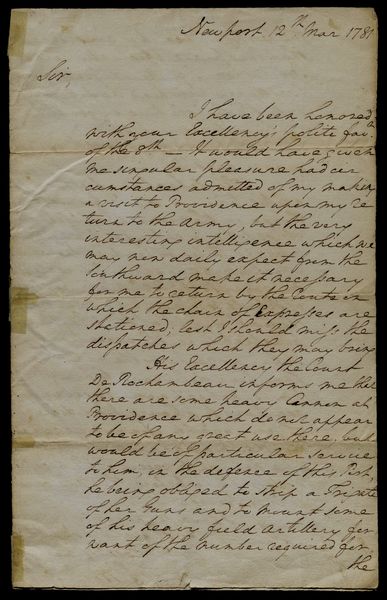 Newport 12th Mar 1781
Sir,
I have been honored
with your Excellency's polite fav.
of the 8th — It would have given
me singular pleasure had cir
cumstances admitted of my making
a visit to Providence upon my re
turn to the Army, but the very
interesting intelligence which we
may now daily expect from the
Southward make it necessary
for me to return by the Route in
which the chain of Expresses are
stationed, lest I should miss the
dispatches which they may bring
His Excellency the Count
De Rochambeau informs me that
there are some heavy Cannon at
Providence which do not appear
to be of any great use there, but
would be of particular service
to him, in the defence of this Post,
he being obliged to strip a Frigate
of her Guns and to mount some
of his heavy field Artillery for
want of the number required for
the